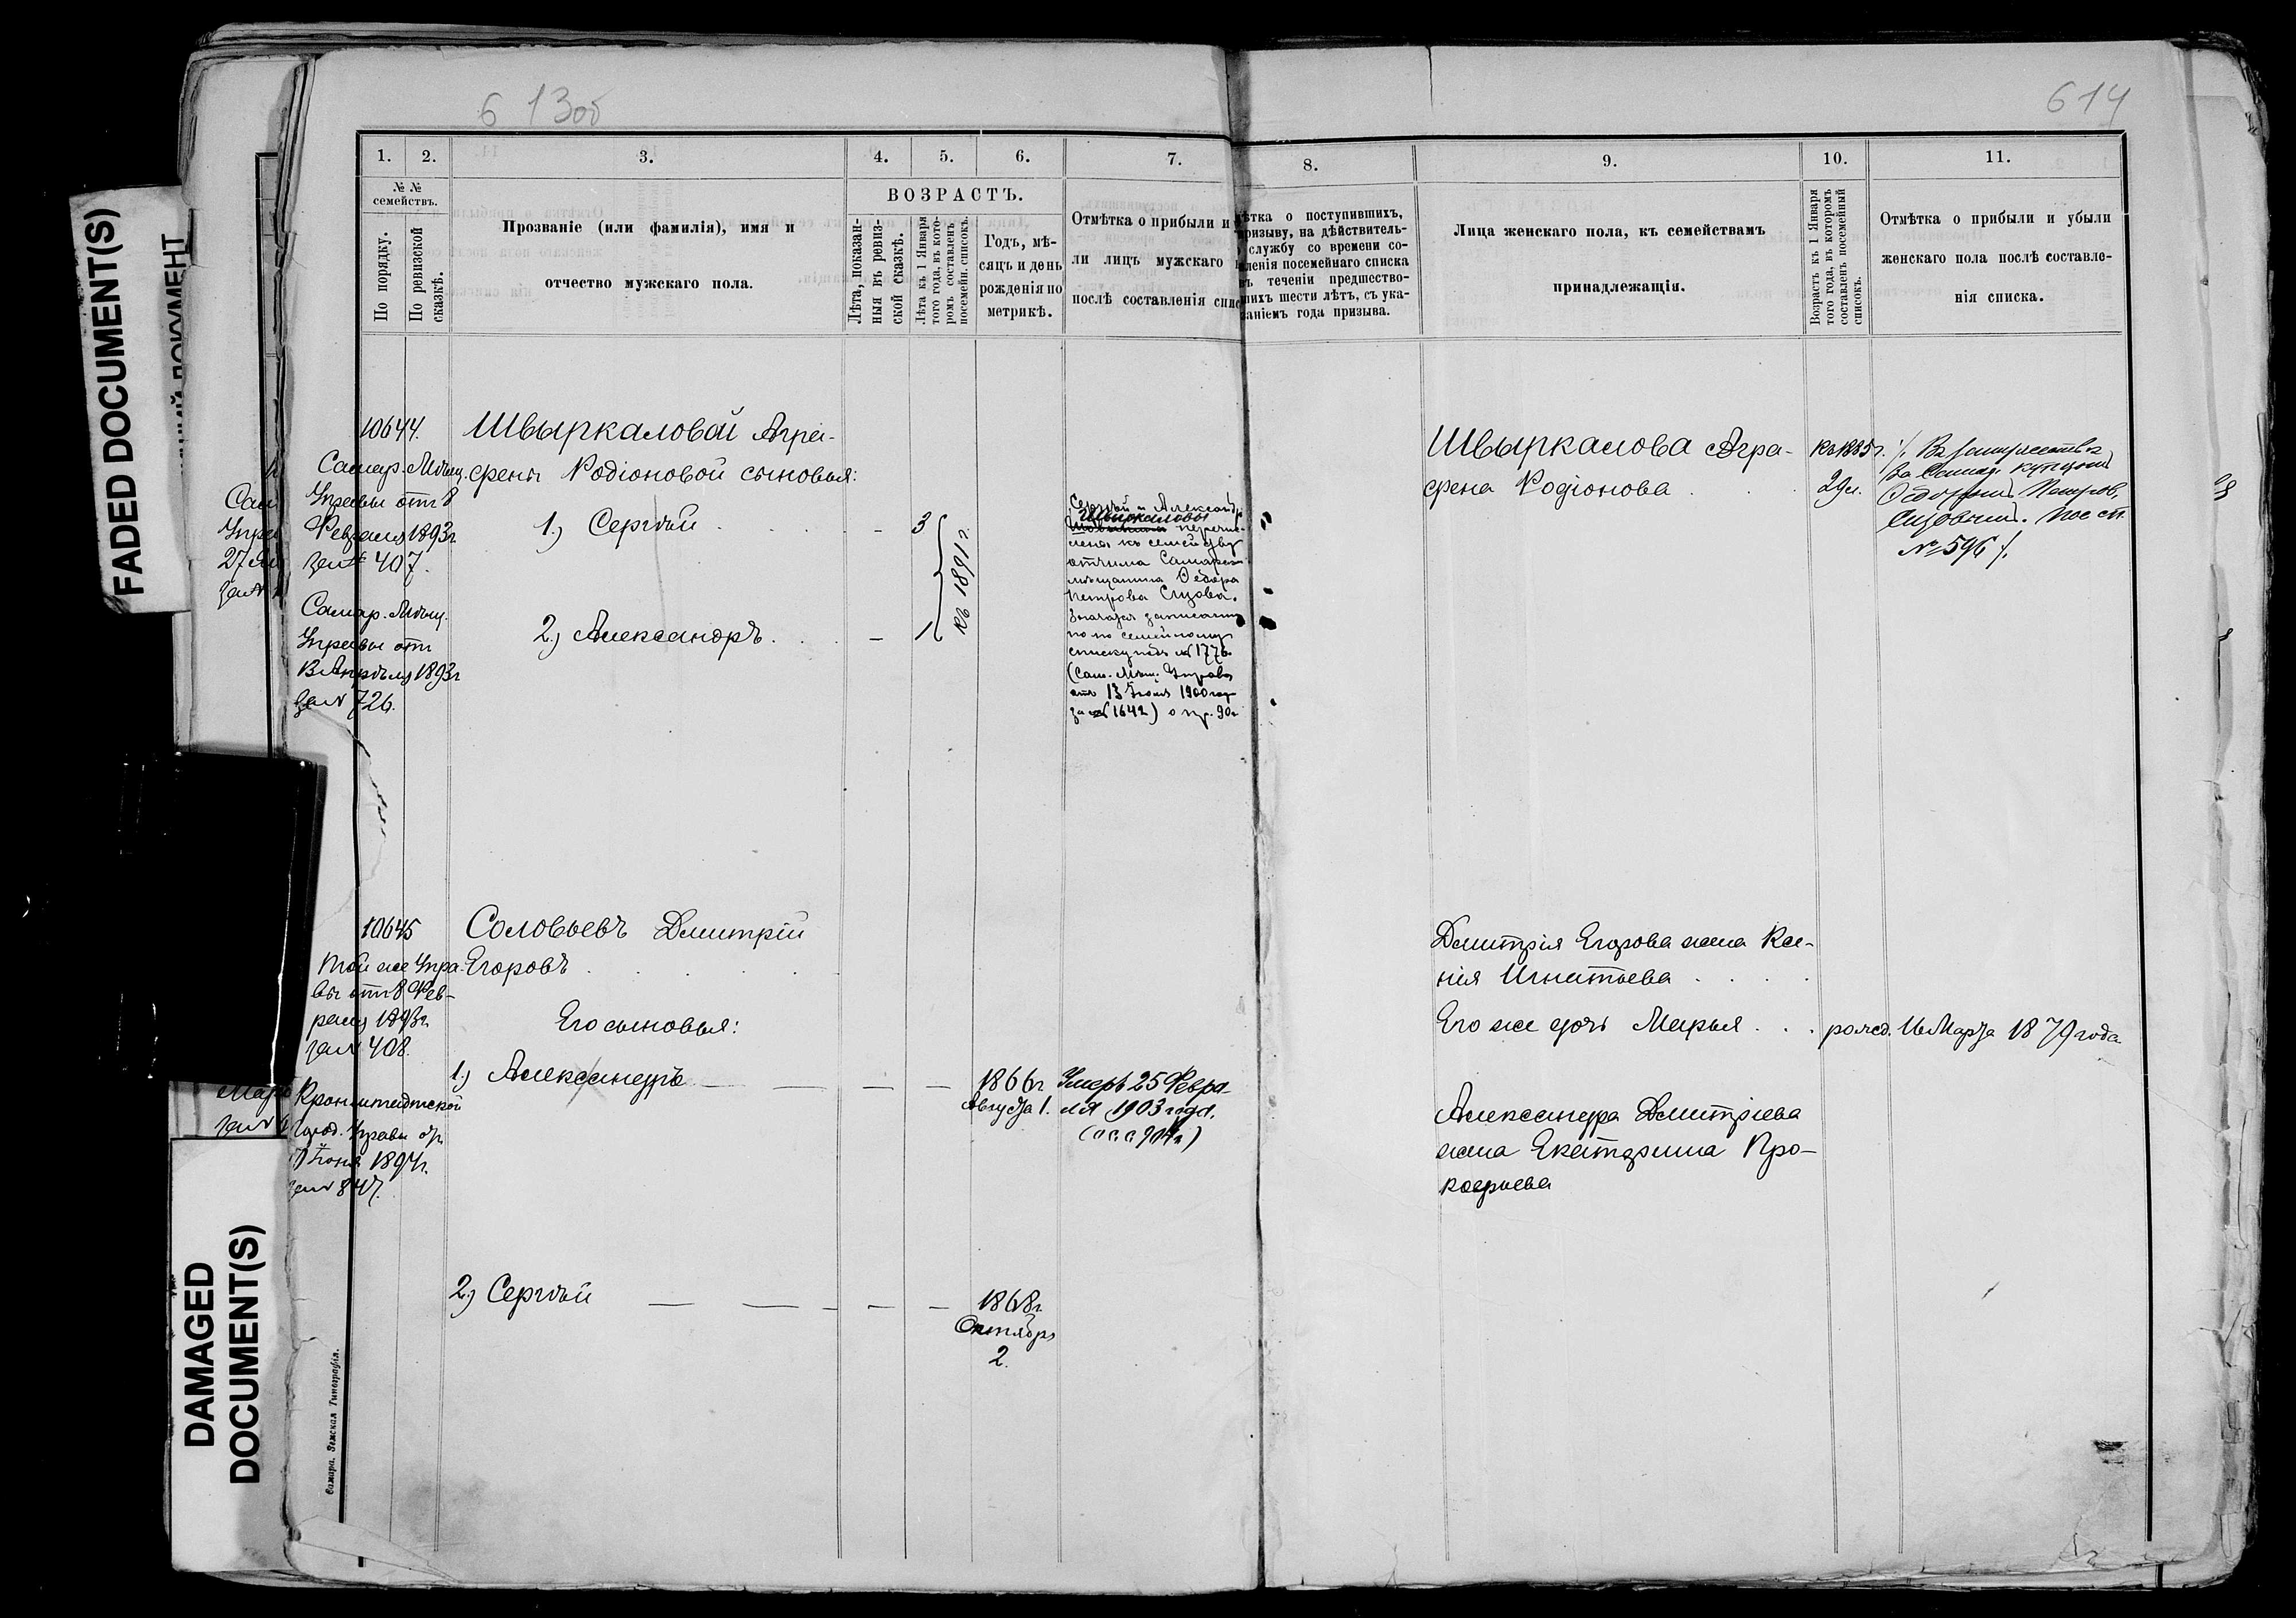 6 13об
614
FADED DOCUMENT(S)
DAMAGED
DOCUMENT(S)
1.
2.
3.
4.
5.
6.
7.
8.
9.
10.
11.
№ №
семействъ.
По порядку.
По ревизской
сказкѣ.
Прозваніе (или фамилія), имя и
отчество мужскаго пола.
ВОЗРАСТЪ.
Лѣта, показан-
ныя въ ревиз-
ской сказкѣ.
Лѣта къ 1 Января
того года, въ кото-
ромъ составленъ
посемейн. списокъ.
Годъ, мѣ-
сяцъ и день
рожденія по
метрикѣ.
Отмѣтка о прибыли и
ли лицъ мужскаго
послѣ составленія спис
ѣтка о поступившихъ,
призыву, на дѣйствитель-
службу со времени со-
вленія посемейнаго списка
въ теченіи предшество-
шихъ шести лѣтъ, съ ука-
заніемъ года призыва.
Лица женскаго пола, къ семействамъ
принадлежащія.
Возрастъ къ 1 Января
того года, въ которомъ
составленъ посемейный
списокъ.
Отмѣтка о прибыли и убыли
женскаго пола послѣ составле-
нія списка.
10644.
Самар. Мѣщ.
Управы отъ 8
Февраля 1893г.
за № 407.
Самар. Мѣщ.
Управы отъ
Апрѣля 1893г
за № 726.
Швыркаловой Агра-
фены Родіоновой сыновья:
1.) Сергѣй
3
2.) Александръ
1
къ 1891 г.
Сергѣй и Александръ
Швыркаловы
перечис-
лены къ семейству
отчима Самарск
мѣщанина Ѳедора
Петрова Сизова.
по семейному
списку подъ № 1776
(Сам. Мѣщ. Управа
отъ 13 Іюня 1900 год
за № 1642) о пр. 90г
Швыркалова Агра-
фена Родіонова
къ 1885г.
29л.
Въ замужествѣ
за Самар. купцомъ
Ѳедоромъ Петров.
Сизовымъ. Пос сп.
№ 596
10645
той же Упра-
вы отъ 8 Фев-
раля 1893г.
за № 408.
Кронштадтской
Город. Управы отъ
Іюня 1894г.
за № 847.
Соловьевъ Дмитрій
Егоровъ
Его сыновья:
1.) Александръ
1866г
Августа 1.
Умеръ 25 Февра-
ля 1903 года.
2.) Сергѣй
1868г.
Октября
2.
Дмитрія Егорова жена Ксе-
нія Игнатьева
Его же дочь Марья
рожд. Марта 1879 года
Александра Дмитріева
жена Екатерина Про-
кофьева
Самара. Земская Типографія.